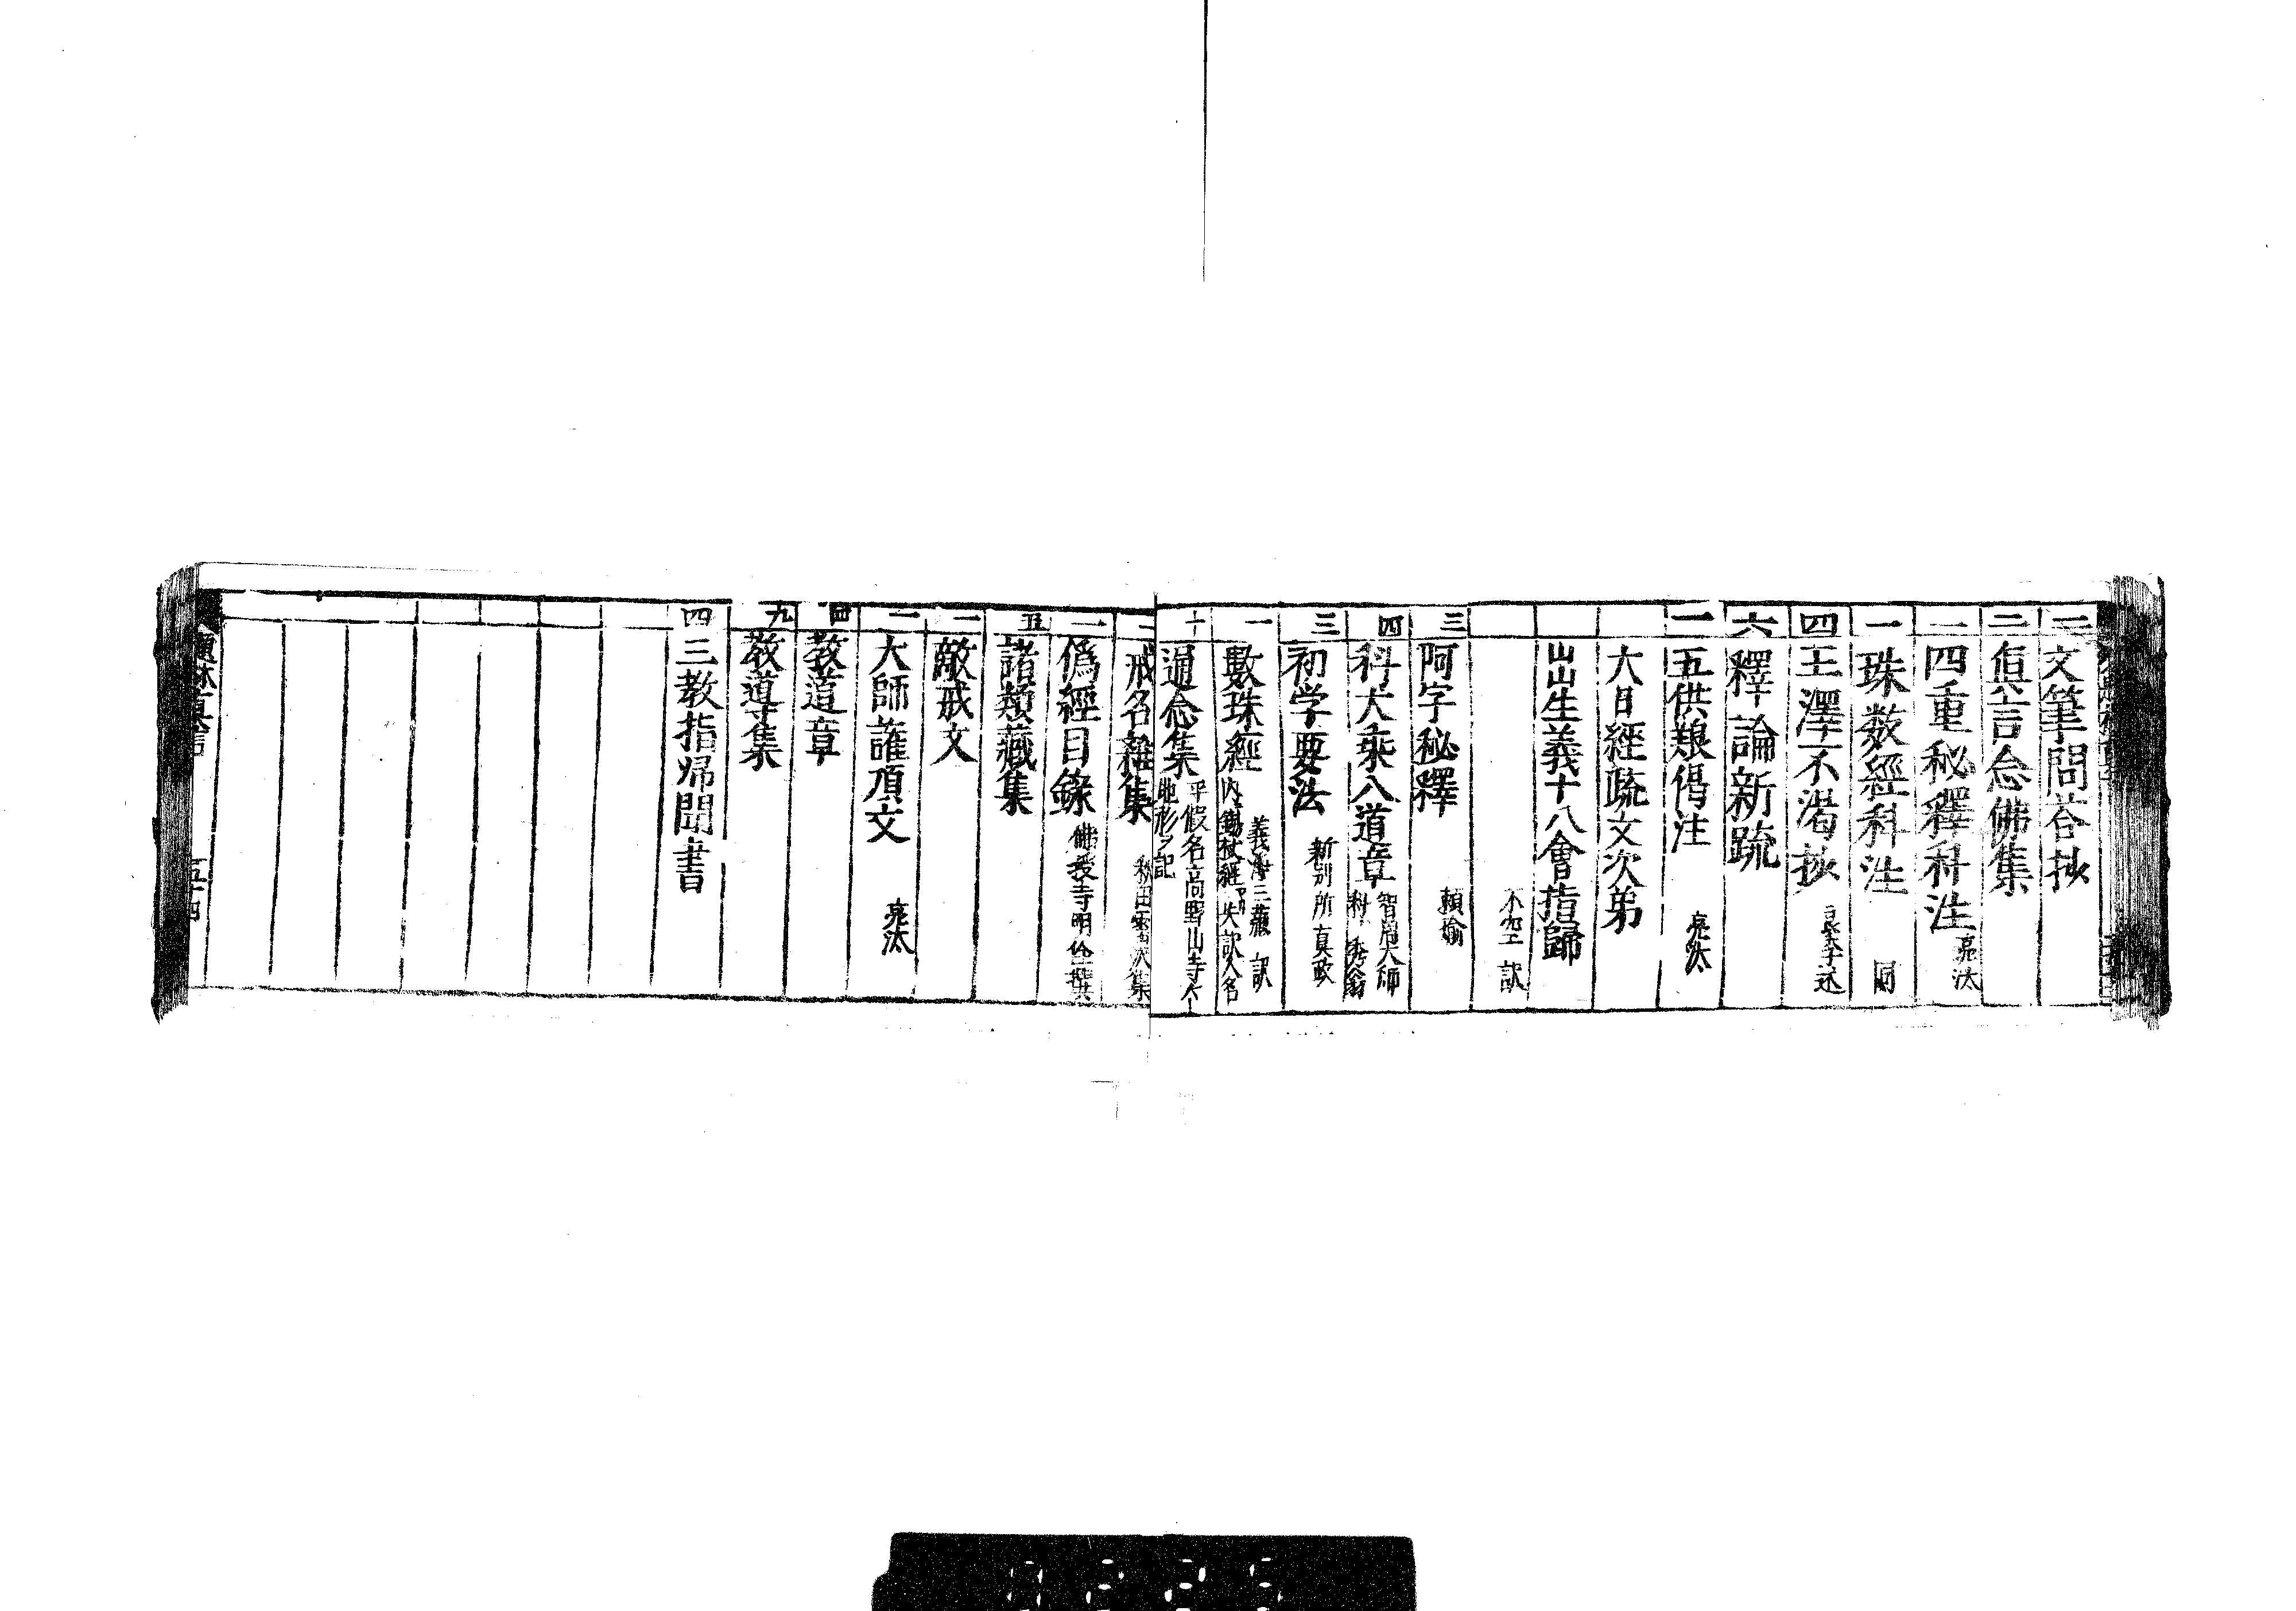 二 文筆問荅抄
二 真言念佛集
二 四重秘釋科注 亮汰
一 珠数經科注 同
四 玉澤不渇抄 良季述
六 釋論新疏
一 五供養偈注 亮汰
大日經疏文次第
出生義十八會指歸
不空 訳
三 阿字秘釋 頼瑜
四 科大乘八道章 智嵩大師
科 秀翁
三 初学要法 新別所真政
一 數珠經 義浄三藏 訳
内錫杖經 失訳人名
十 通念集 平假名高野山寺
地形ヲ記
二 戒名雜集 集
一 偽經目錄 佛授寺明
五 諸類藏集
一 敵戒文
一 大師誰頂文 亮汰
四 教道章
九 教導集
四 三教指帰聞書
真言 五十四